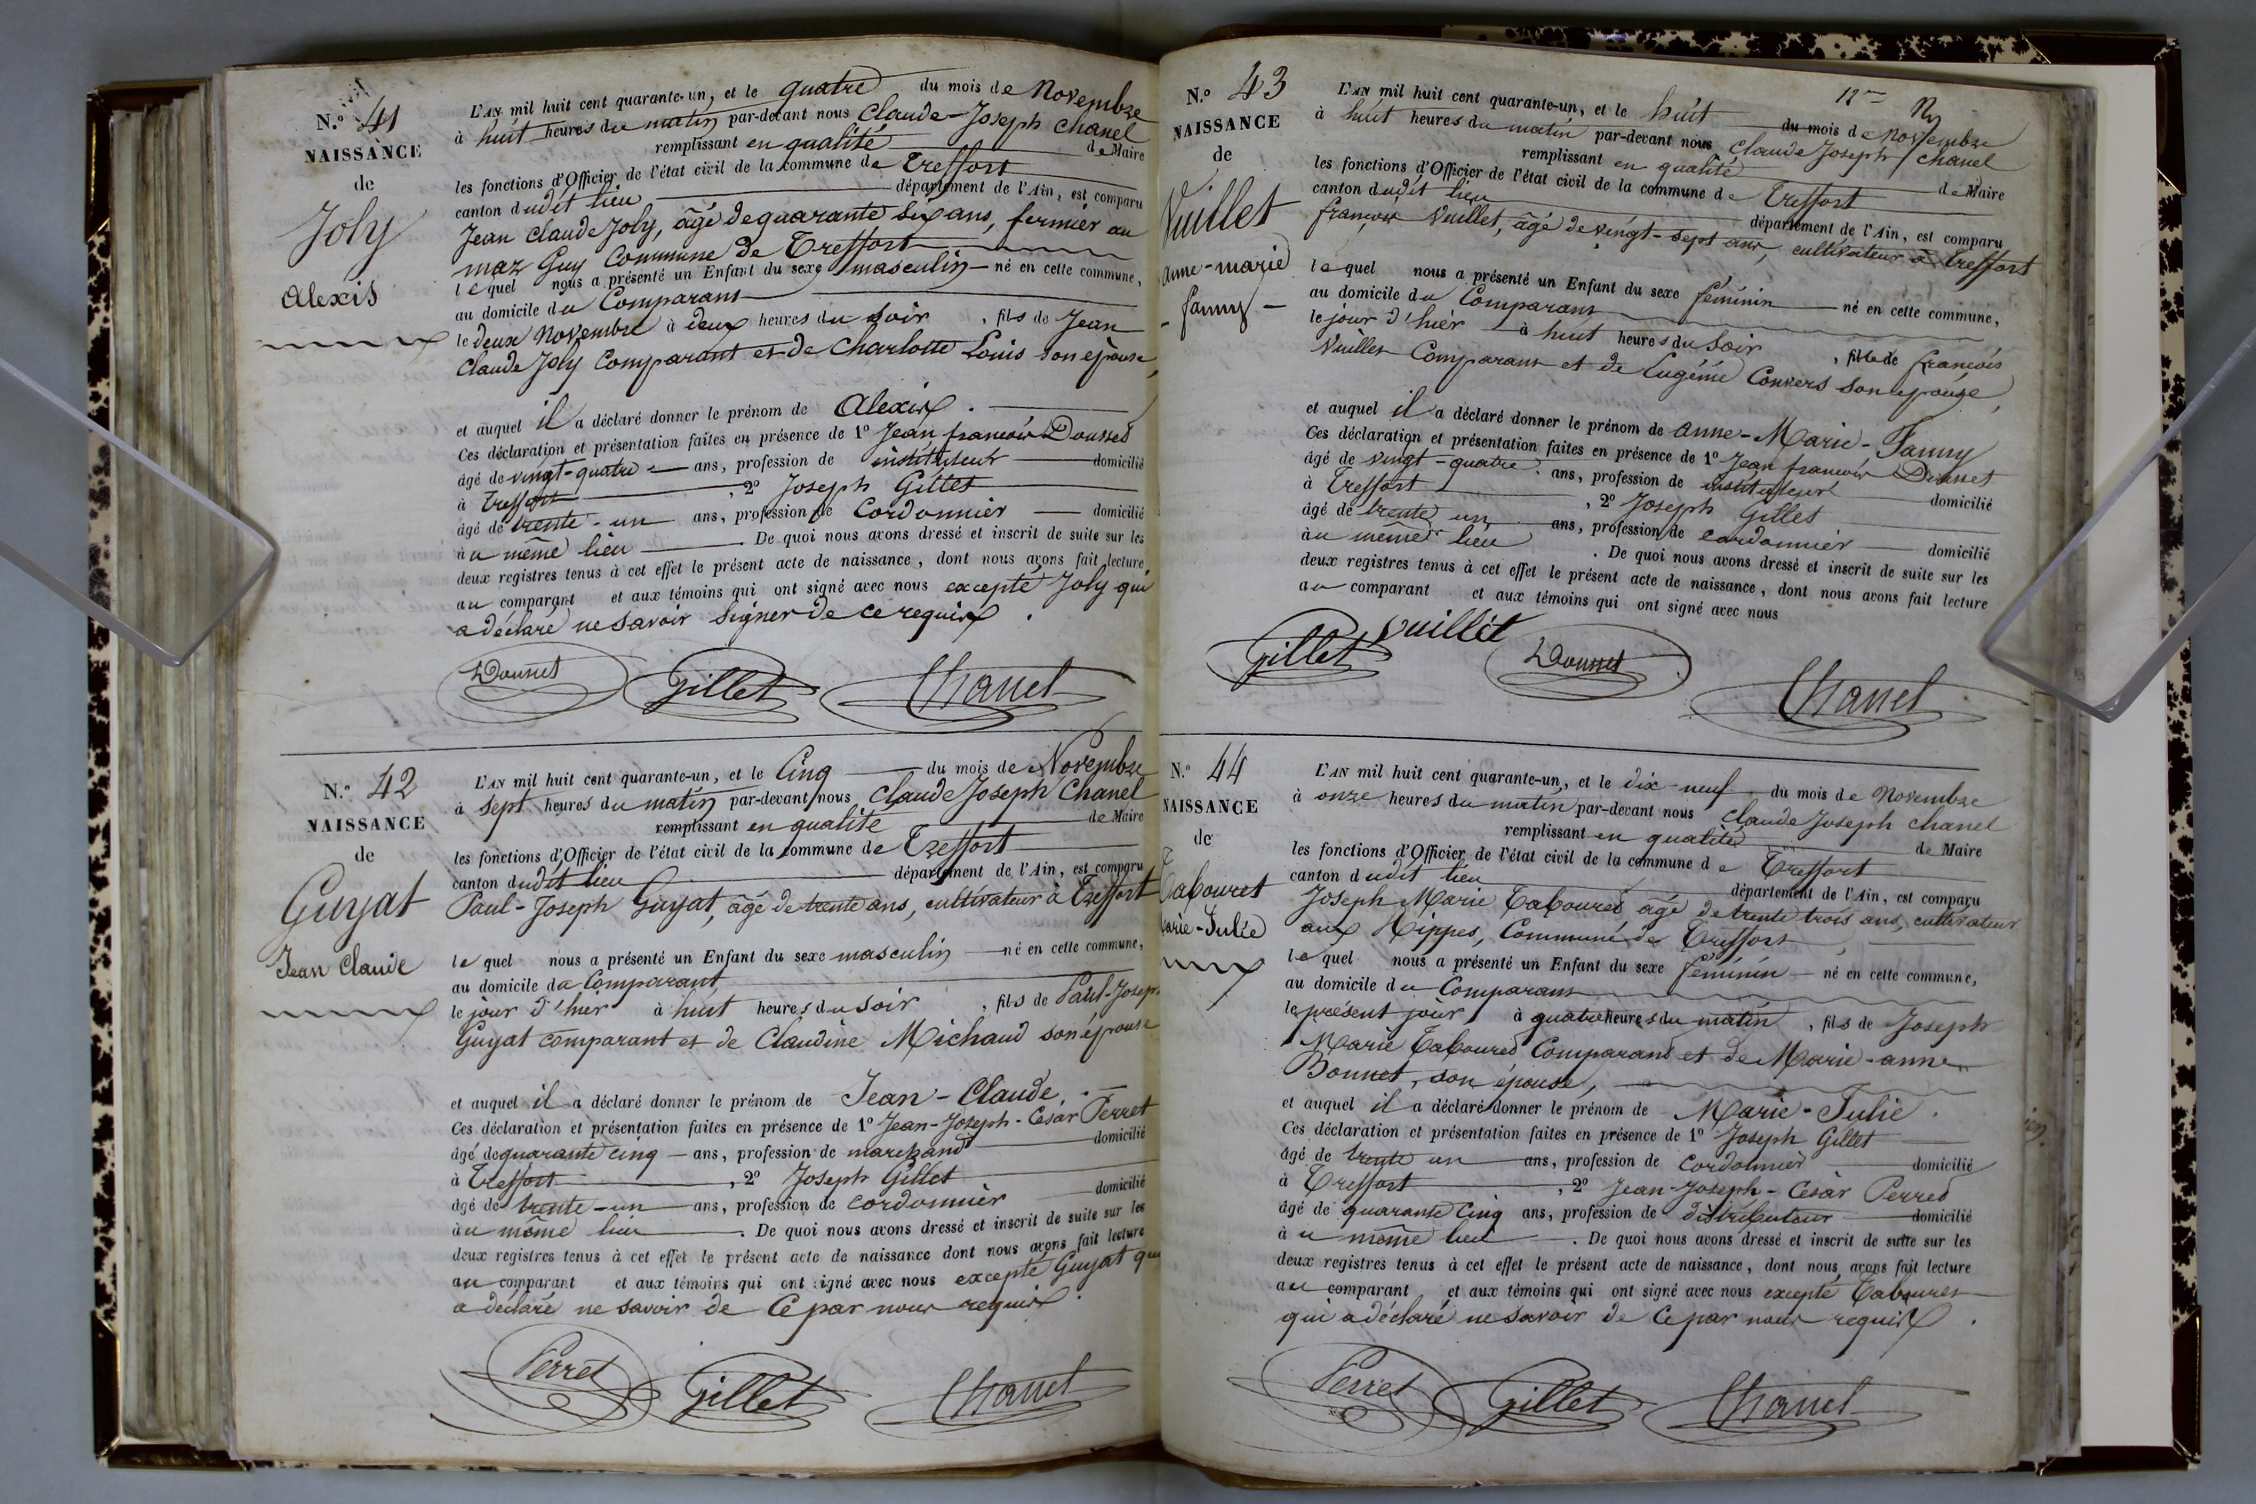 N.° 41
NAISSANCE
de
Joly
Alexis
L'AN mil huit cent quarante-un, et le quatre du mois de Novembre
à huit heures du matin par-devant nous Claude-Joseph Chanel
remplissant en qualité de Maire
les fonctions d'Officier de l'état civil de la commune de Treffort
canton dudit lieu département de l'Ain, est comparu
Jean Claude Joly, âgé de quarante six ans, fermier au
maz Guy Commune de Treffort
lequel nous a présenté un Enfant du sexe masculin né en cette commune,
au domicile du Comparant
le deux Novembre à deux heures du soir, fils de Jean
Claude Joly Comparant et de Charlotte Louis son épouse,
et auquel il a déclaré donner le prénom de Alexis.
Ces déclaration et présentation faites en présence de 1° Jean françois Dousset
âgé de vingt-quatre ans, profession de instituteur domicilié
à Treffort, 2° Joseph Gillet
âgé de trente-un ans, profession de Cordonnier domicilié
au même lieu. De quoi nous avons dressé et inscrit de suite sur les
deux registres tenus à cet effet le présent acte de naissance, dont nous avons fait lecture
au comparant et aux témoins qui ont signé avec nous excepté Joly qui
a déclaré ne savoir signer de ce requis.
Gillet Chanel
N.° 42
NAISSANCE
de
Guyat
Jean Claude
L'AN mil huit cent quarante-un, et le Cinq du mois de Novembre
à sept heures du matin par-devant nous Claude Joseph Chanel
remplissant en qualité de Maire
les fonctions d'Officier de l'état civil de la commune de Treffort
canton dudit lieu département de l'Ain, est comparu
Paul-Joseph Guyat, âgé de trente ans, cultivateur à Treffort
lequel nous a présenté un Enfant du sexe masculin né en cette commune,
au domicile du Comparant
le jour d'hier à huit heures du soir, fils de Paul-Joseph
Guyat comparant et de Claudine Michaud son épouse
et auquel il a déclaré donner le prénom de Jean-Claude.
Ces déclaration et présentation faites en présence de 1° Jean-Joseph-César Perret
âgé de quarante cinq ans, profession de marchand domicilié
à Treffort, 2° Joseph Gillet
âgé de trente-un ans, profession de cordonnier domicilié
au même lieu. De quoi nous avons dressé et inscrit de suite sur les
deux registres tenus à cet effet le présent acte de naissance dont nous avons fait lecture
au comparant et aux témoins qui ont signé avec nous excepté Guyat qui
a déclaré ne savoir de Ce par nous requis.
Perret Gillet Chanel
N.° 43
NAISSANCE
de
Vuillet
anne-marie
fanny
L'AN mil huit cent quarante-un, et le huit du mois de Novembre
à huit heures du matin par-devant nous Claude Joseph Chanel
remplissant en qualité de Maire
les fonctions d'Officier de l'état civil de la commune de Treffort
canton dudit lieu département de l'Ain, est comparu
françois Vuillet, âgé de vingt-sept ans, cultivateur à treffort
lequel nous a présenté un Enfant du sexe féminin né en cette commune,
au domicile du Comparant
le jour d'hier à huit heures du soir, fille de françois
Vuillet Comparant et de Eugénie Convers son épouse,
et auquel il a déclaré donner le prénom de anne-Marie-Fanny
Ces déclaration et présentation faites en présence de 1° Jean françois Dousset
âgé de vingt-quatre ans, profession de instituteur domicilié
à Treffort, 2° Joseph Gillet
âgé de trente un ans, profession de cordonnier domicilié
au même lieu. De quoi nous avons dressé et inscrit de suite sur les
deux registres tenus à cet effet le présent acte de naissance, dont nous avons fait lecture
au comparant et aux témoins qui ont signé avec nous
Gillet vuillet Chanel
N.° 44
NAISSANCE
de
Tabouret
Marie-Julie
L'AN mil huit cent quarante-un, et le dix-neuf du mois de Novembre
à onze heures du matin par-devant nous Claude Joseph Chanel
remplissant en qualité de Maire
les fonctions d'Officier de l'état civil de la commune de Treffort
canton dudit lieu département de l'Ain, est comparu
Joseph Marie Tabouret âgé de trente trois ans, cultivateur
aux Rippes, Commune de Treffort,
lequel nous a présenté un Enfant du sexe féminin né en cette commune,
au domicile du Comparant
le présent jour à quatre heures du matin, fils de Joseph
Marie Tabouret Comparant et de Marie-anne
Bonnet, son épouse,
et auquel il a déclaré donner le prénom de Marie-Julie.
Ces déclaration et présentation faites en présence de 1° Joseph Gillet
âgé de trente un ans, profession de cordonnier domicilié
à Treffort, 2° Jean-Joseph-César Perret
âgé de quarante cinq ans, profession de distributeur domicilié
au même lieu. De quoi nous avons dressé et inscrit de suite sur les
deux registres tenus à cet effet le présent acte de naissance, dont nous avons fait lecture
au comparant et aux témoins qui ont signé avec nous excepté Tabouret
qui a déclaré ne savoir de Ce par nous requis.
Perret Gillet Chanel